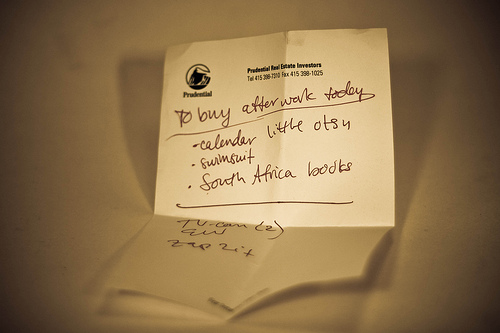 Prudential Real Estate Investors
Tel 415 398-7310 Fax 415 398-1025
Prudential
To buy after work today
- calendar little otsu
- swimsuit
• South Africa books
(2)
zap zit